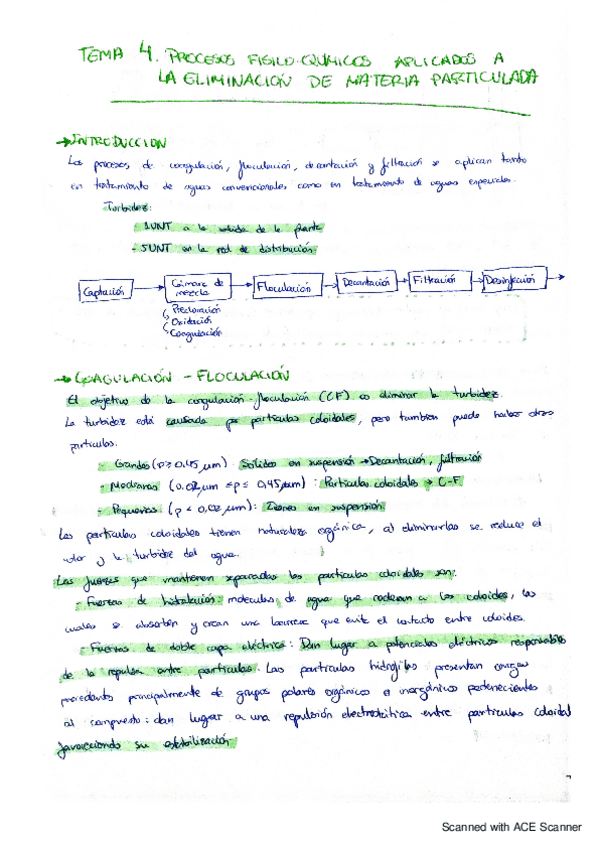 TEMA 4. PROCESOS FISILO-QUIMICOS APLICADOS A
LA ELIMINACIÓN DE MATERIA PARTICULADA
→ INTRODUCCION
Los procesos de coagulación, floculación, decantación y filtración se aplican tanto
en tratamiento de aguas convencionales como en tratamiento de aguas especiales.
Turbidez:
- 1UNT a la salida de la planta
- 5UNT en la red de distribución
Captación → Cámara de mezcla → Floculación → Decantación → Filtración → Desinfección →
Precloración
Oxidación
Coagulación
→ COAGULACIÓN - FLOCULACIÓN
El objetivo de la coagulación-floculación (CF) es eliminar la turbidez.
La turbidez está causada por partículas coloidales, pero tambien puede haber otras
partículas.
- Grandes (p > 0,45 µm) Sólidos en suspensión → Decantación, filtración
- Medianas (0,02 µm ≤ p ≤ 0,45 µm): Partículas coloidales → C-F
- Pequeñas (p < 0,02 µm): Iones en suspensión
Las partículas coloidales tienen naturaleza orgánica, al eliminarlas se reduce el
color y la turbidez del agua.
Las fuerzas que mantienen separadas las partículas coloidales son:
- Fuerzas de hidratación: moléculas de agua que rodean a los coloides, las
cuales se absorben y crean una barrera que evite el contacto entre coloides.
- Fuerzas de doble capa eléctrica: Dan lugar a potenciales eléctricos responsables
de la repulsión entre partículas. Las partículas hidrófilas presentan cargas
procedentes principalmente de grupos polares orgánicos o inorgánicos pertenecientes
al compuesto: dan lugar a una repulsión electrostática entre partículas coloidal
favoreciendo su estabilización.
Scanned with ACE Scanner